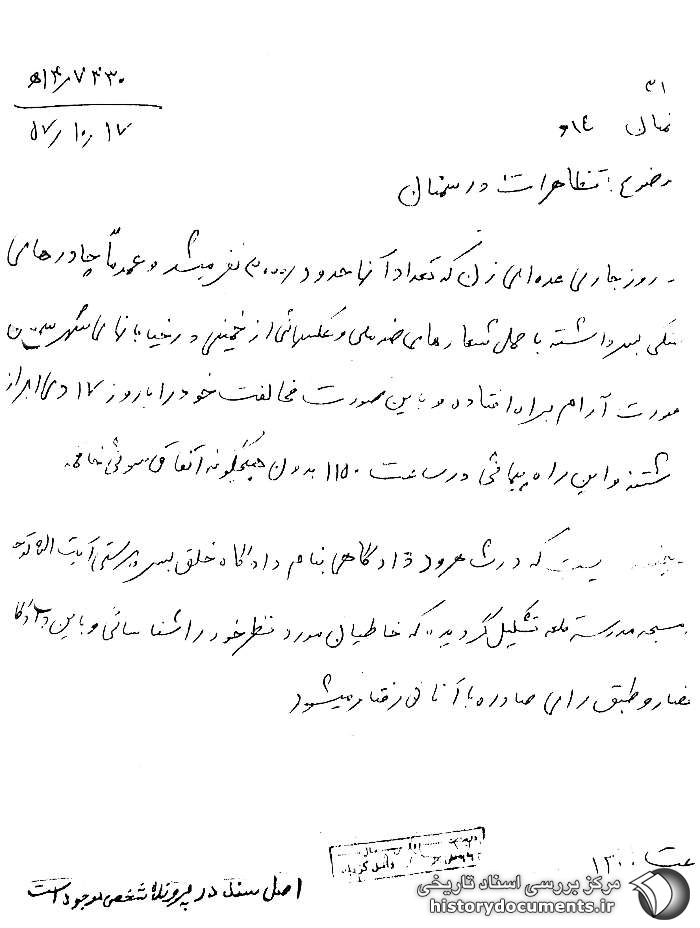 ۳۱
۱۴۰۷۴۳۰ ه۱
۵۷٫۱۰٫۱۷
موضوع: تظاهرات در سمنان
روز جاری عده‌ای زن که تعداد آنها حدود ۳۰۰۰ نفر میشد و عمدتاً چادرهای
مشکی بسر داشته با حمل شعارهای ضد ملی و عکسهائی از خمینی در خیابانهای شهر
صورت آرام براه افتاده و باین صورت مخالفت خود را با روز ۱۷ دی ابراز
داشتند و این راه پیمائی در ساعت ۱۱۵۰ بدون هیچگونه اتفاق سوئی خاتمه
که در شاهرود دادگاهی بنام دادگاه خلق بسرپرستی آیت اله
مسجد مدرسه قلعه تشکیل گردیده که خاطیان مورد نظر خود را شناسائی و باین دادگاه
احضار و طبق رای صادره با آنان رفتار میشود
ساعت ۱۳۰۰
اصل سند در پرونده شخصی موجود است
مرکز بررسی اسناد تاریخی
historydocuments.ir